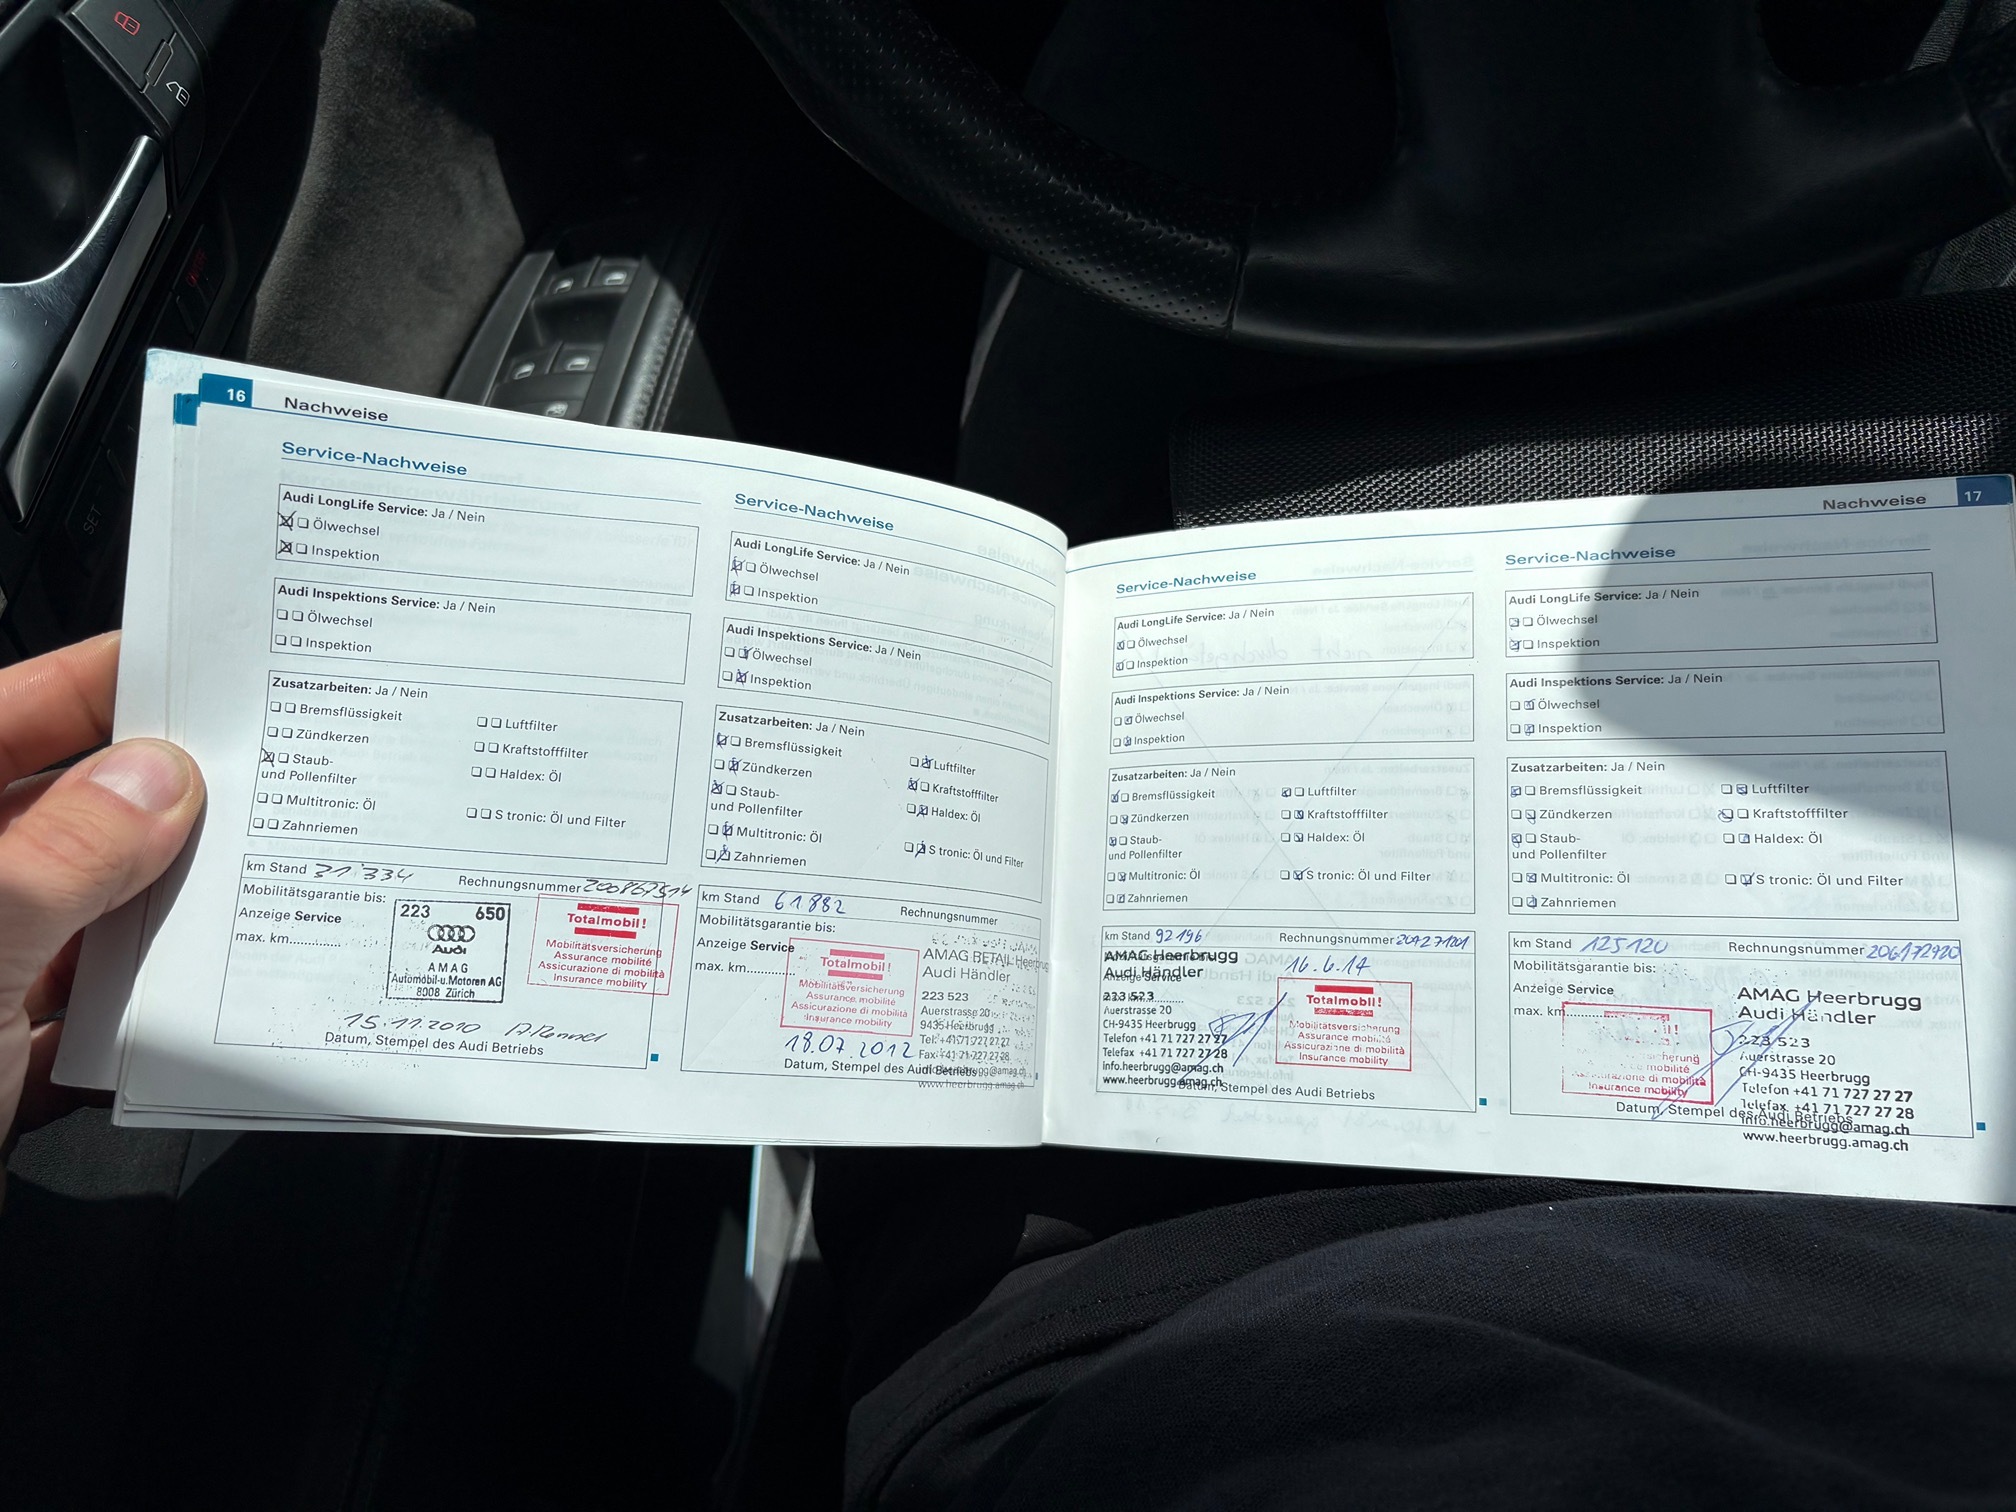 SET
OFF
16
Nachweise
Service-Nachweise
Audi LongLife Service: Ja / Nein
Ölwechsel
Inspektion
Audi Inspektions Service: Ja / Nein
Ölwechsel
Inspektion
Zusatzarbeiten: Ja / Nein
Bremsflüssigkeit
Luftfilter
Zündkerzen
Kraftstofffilter
Staub-
und Pollenfilter
Haldex: Öl
Multitronic: Öl
S tronic: Öl und Filter
Zahnriemen
km Stand 31.334 Rechnungsnummer 200867514
Mobilitätsgarantie bis:
Anzeige Service
max. km............
223 650
Audi
AMAG
Automobil-u.Motoren AG
8008 Zürich
Totalmobil!
Mobilitätsversicherung
Assurance mobilité
Assicurazione di mobilità
Insurance mobility
15.11.2010
Datum, Stempel des Audi Betriebs
Service-Nachweise
Audi LongLife Service: Ja / Nein
Ölwechsel
Inspektion
Audi Inspektions Service: Ja / Nein
Ölwechsel
Inspektion
Zusatzarbeiten: Ja / Nein
Bremsflüssigkeit
Luftfilter
Zündkerzen
Kraftstofffilter
Staub-
und Pollenfilter
Haldex: Öl
Multitronic: Öl
S tronic: Öl und Filter
Zahnriemen
km Stand 61882 Rechnungsnummer
Mobilitätsgarantie bis:
Anzeige Service
max. km............
Totalmobil!
Mobilitätsversicherung
Assurance mobilité
Assicurazione di mobilità
Insurance mobility
AMAG RETAIL Heerbrugg
Audi Händler
223 523
Auerstrasse 20
9435 Heerbrugg
Tel: +41 71 727 27 27
Fax +41 71 727 27 28
info.heerbrugg@amag.ch
www.heerbrugg.amag.ch
18.07.2012
Datum, Stempel des Audi Betriebs
Nachweise
17
Service-Nachweise
Audi LongLife Service: Ja / Nein
Ölwechsel
Inspektion
Audi Inspektions Service: Ja / Nein
Ölwechsel
Inspektion
Zusatzarbeiten: Ja / Nein
Bremsflüssigkeit
Luftfilter
Zündkerzen
Kraftstofffilter
Staub-
und Pollenfilter
Haldex: Öl
Multitronic: Öl
S tronic: Öl und Filter
Zahnriemen
km Stand 92196 Rechnungsnummer
AMAG Heerbrugg
Audi Händler
Anzeige Service
223 523
Auerstrasse 20
CH-9435 Heerbrugg
Telefon +41 71 727 27 27
Telefax +41 71 727 27 28
info.heerbrugg@amag.ch
www.heerbrugg.amag.ch
16.6.14
Totalmobil!
Mobilitätsversicherung
Assurance mobilité
Assicurazione di mobilità
Insurance mobility
Datum, Stempel des Audi Betriebs
Service-Nachweise
Audi LongLife Service: Ja / Nein
Ölwechsel
Inspektion
Audi Inspektions Service: Ja / Nein
Ölwechsel
Inspektion
Zusatzarbeiten: Ja / Nein
Bremsflüssigkeit
Luftfilter
Zündkerzen
Kraftstofffilter
Staub-
und Pollenfilter
Haldex: Öl
Multitronic: Öl
S tronic: Öl und Filter
Zahnriemen
km Stand 125120 Rechnungsnummer 206172920
Mobilitätsgarantie bis:
Anzeige Service
max. km............
mobilité
Assicurazione di mobilità
Insurance mobility
AMAG Heerbrugg
Audi Händler
223 523
Auerstrasse 20
CH-9435 Heerbrugg
Telefon +41 71 727 27 27
Telefax +41 71 727 27 28
info.heerbrugg@amag.ch
www.heerbrugg.amag.ch
Datum, Stempel des Audi Betriebs